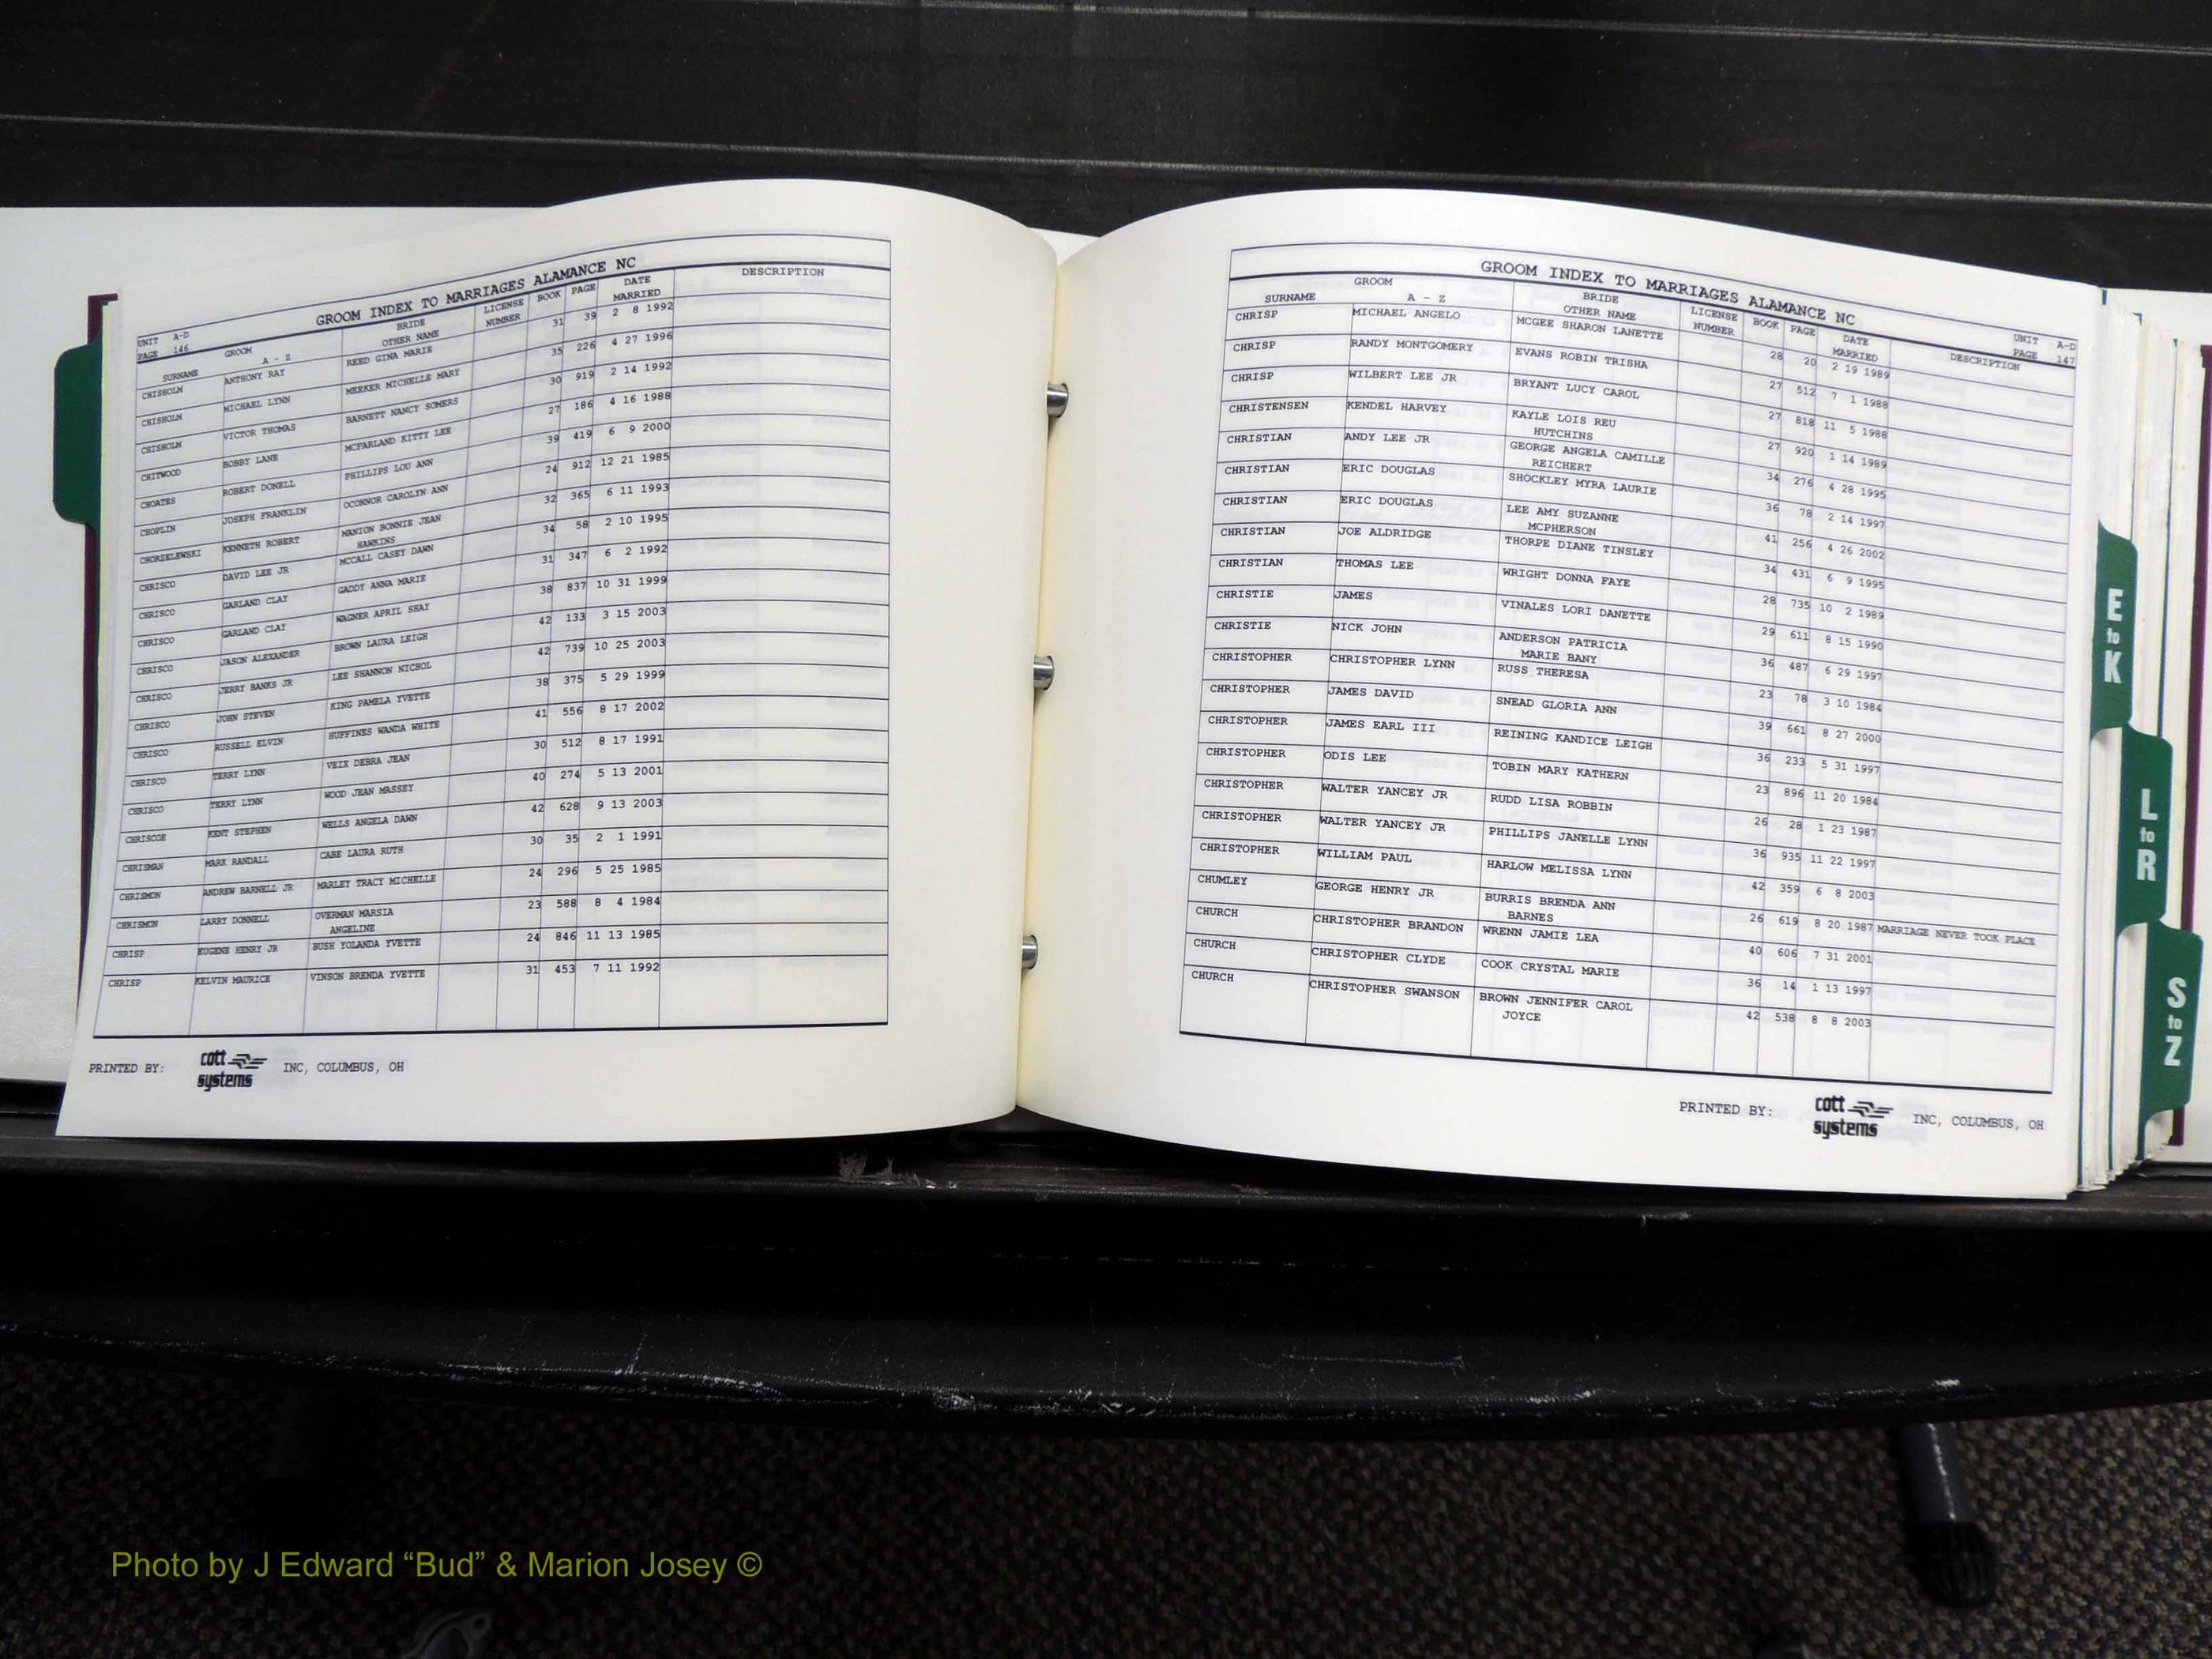 GROOM INDEX TO MARRIAGES ALAMANCE NC
UNIT A-D
PAGE 146
GROOM BRIDE LICENSE BOOK PAGE DATE DESCRIPTION
SURNAME A - Z OTHER NAME NUMBER MARRIED
CHISHOLM ANTHONY RAY REED GINA MARIE 31 39 2 8 1992
CHISHOLM MICHAEL LYNN MEEKER MICHELLE MARY 35 226 4 27 1996
CHISHOLM VICTOR THOMAS BARNETT NANCY SOMERS 30 919 2 14 1992
CHITWOOD BOBBY LANE MCFARLAND KITTY LEE 27 186 4 16 1988
CHOATES ROBERT DONELL PHILLIPS LOU ANN 39 419 6 9 2000
CHOPLIN JOSEPH FRANKLIN OCONNOR CAROLYN ANN 24 912 12 21 1985
CHORZELEWSKI KENNETH ROBERT MANION BONNIE JEAN 32 365 6 11 1993
HAWKINS
CHRISCO DAVID LEE JR MCCALL CASEY DAWN 34 58 2 10 1995
CHRISCO GARLAND CLAY GADDY ANNA MARIE 31 347 6 2 1992
CHRISCO GARLAND CLAY WAGNER APRIL SHAY 38 837 10 31 1999
CHRISCO JASON ALEXANDER BROWN LAURA LEIGH 42 133 3 15 2003
CHRISCO JERRY BANKS JR LEE SHANNON NICHOL 42 739 10 25 2003
CHRISCO JOHN STEVEN KING PAMELA YVETTE 38 375 5 29 1999
CHRISCO RUSSELL ELVIN HUFFINES WANDA WHITE 41 556 8 17 2002
CHRISCO TERRY LYNN VEIX DEBRA JEAN 30 512 8 17 1991
CHRISCO TERRY LYNN WOOD JEAN MASSEY 40 274 5 13 2001
CHRISCOE KENT STEPHEN WELLS ANGELA DAWN 42 628 9 13 2003
CHRISMAN MARK RANDALL CABE LAURA RUTH 30 35 2 1 1991
CHRISMON ANDREW BARNELL JR MARLEY TRACY MICHELLE 24 296 5 25 1985
CHRISMON LARRY DONNELL OVERMAN MARSIA 23 588 8 4 1984
ANGELINE
CHRISP EUGENE HENRY JR BUSH YOLANDA YVETTE 24 846 11 13 1985
CHRISP KELVIN MAURICE VINSON BRENDA YVETTE 31 453 7 11 1992
PRINTED BY: cott systems INC, COLUMBUS, OH
GROOM INDEX TO MARRIAGES ALAMANCE NC
UNIT A-D
PAGE 147
GROOM BRIDE LICENSE BOOK PAGE DATE DESCRIPTION
SURNAME A - Z OTHER NAME NUMBER MARRIED
CHRISP MICHAEL ANGELO MCGEE SHARON LANETTE 28 20 2 19 1989
CHRISP RANDY MONTGOMERY EVANS ROBIN TRISHA 27 512 7 1 1988
CHRISP WILBERT LEE JR BRYANT LUCY CAROL 27 818 11 5 1988
CHRISTENSEN KENDEL HARVEY KAYLE LOIS REU 27 920 1 14 1989
HUTCHINS
CHRISTIAN ANDY LEE JR GEORGE ANGELA CAMILLE 34 276 4 28 1995
REICHERT
CHRISTIAN ERIC DOUGLAS SHOCKLEY MYRA LAURIE 36 78 2 14 1997
CHRISTIAN ERIC DOUGLAS LEE AMY SUZANNE 41 256 4 26 2002
MCPHERSON
CHRISTIAN JOE ALDRIDGE THORPE DIANE TINSLEY 34 431 6 9 1995
CHRISTIAN THOMAS LEE WRIGHT DONNA FAYE 28 735 10 2 1989
CHRISTIE JAMES VINALES LORI DANETTE 29 611 8 15 1990
CHRISTIE NICK JOHN ANDERSON PATRICIA 36 487 6 29 1997
MARIE BANY
CHRISTOPHER CHRISTOPHER LYNN RUSS THERESA 23 78 3 10 1984
CHRISTOPHER JAMES DAVID SNEAD GLORIA ANN 39 661 8 27 2000
CHRISTOPHER JAMES EARL III REINING KANDICE LEIGH 36 233 5 31 1997
CHRISTOPHER ODIS LEE TOBIN MARY KATHERN 23 896 11 20 1984
CHRISTOPHER WALTER YANCEY JR RUDD LISA ROBBIN 26 28 1 23 1987
CHRISTOPHER WALTER YANCEY JR PHILLIPS JANELLE LYNN 36 935 11 22 1997
CHRISTOPHER WILLIAM PAUL HARLOW MELISSA LYNN 42 359 6 8 2003
CHUMLEY GEORGE HENRY JR BURRIS BRENDA ANN 26 619 8 20 1987 MARRIAGE NEVER TOOK PLACE
BARNES
CHURCH CHRISTOPHER BRANDON WRENN JAMIE LEA 40 606 7 31 2001
CHURCH CHRISTOPHER CLYDE COOK CRYSTAL MARIE 36 14 1 13 1997
CHURCH CHRISTOPHER SWANSON BROWN JENNIFER CAROL 42 538 8 8 2003
JOYCE
PRINTED BY: cott systems INC, COLUMBUS, OH
E to K
L to R
S to Z
Photo by J Edward “Bud” & Marion Josey ©